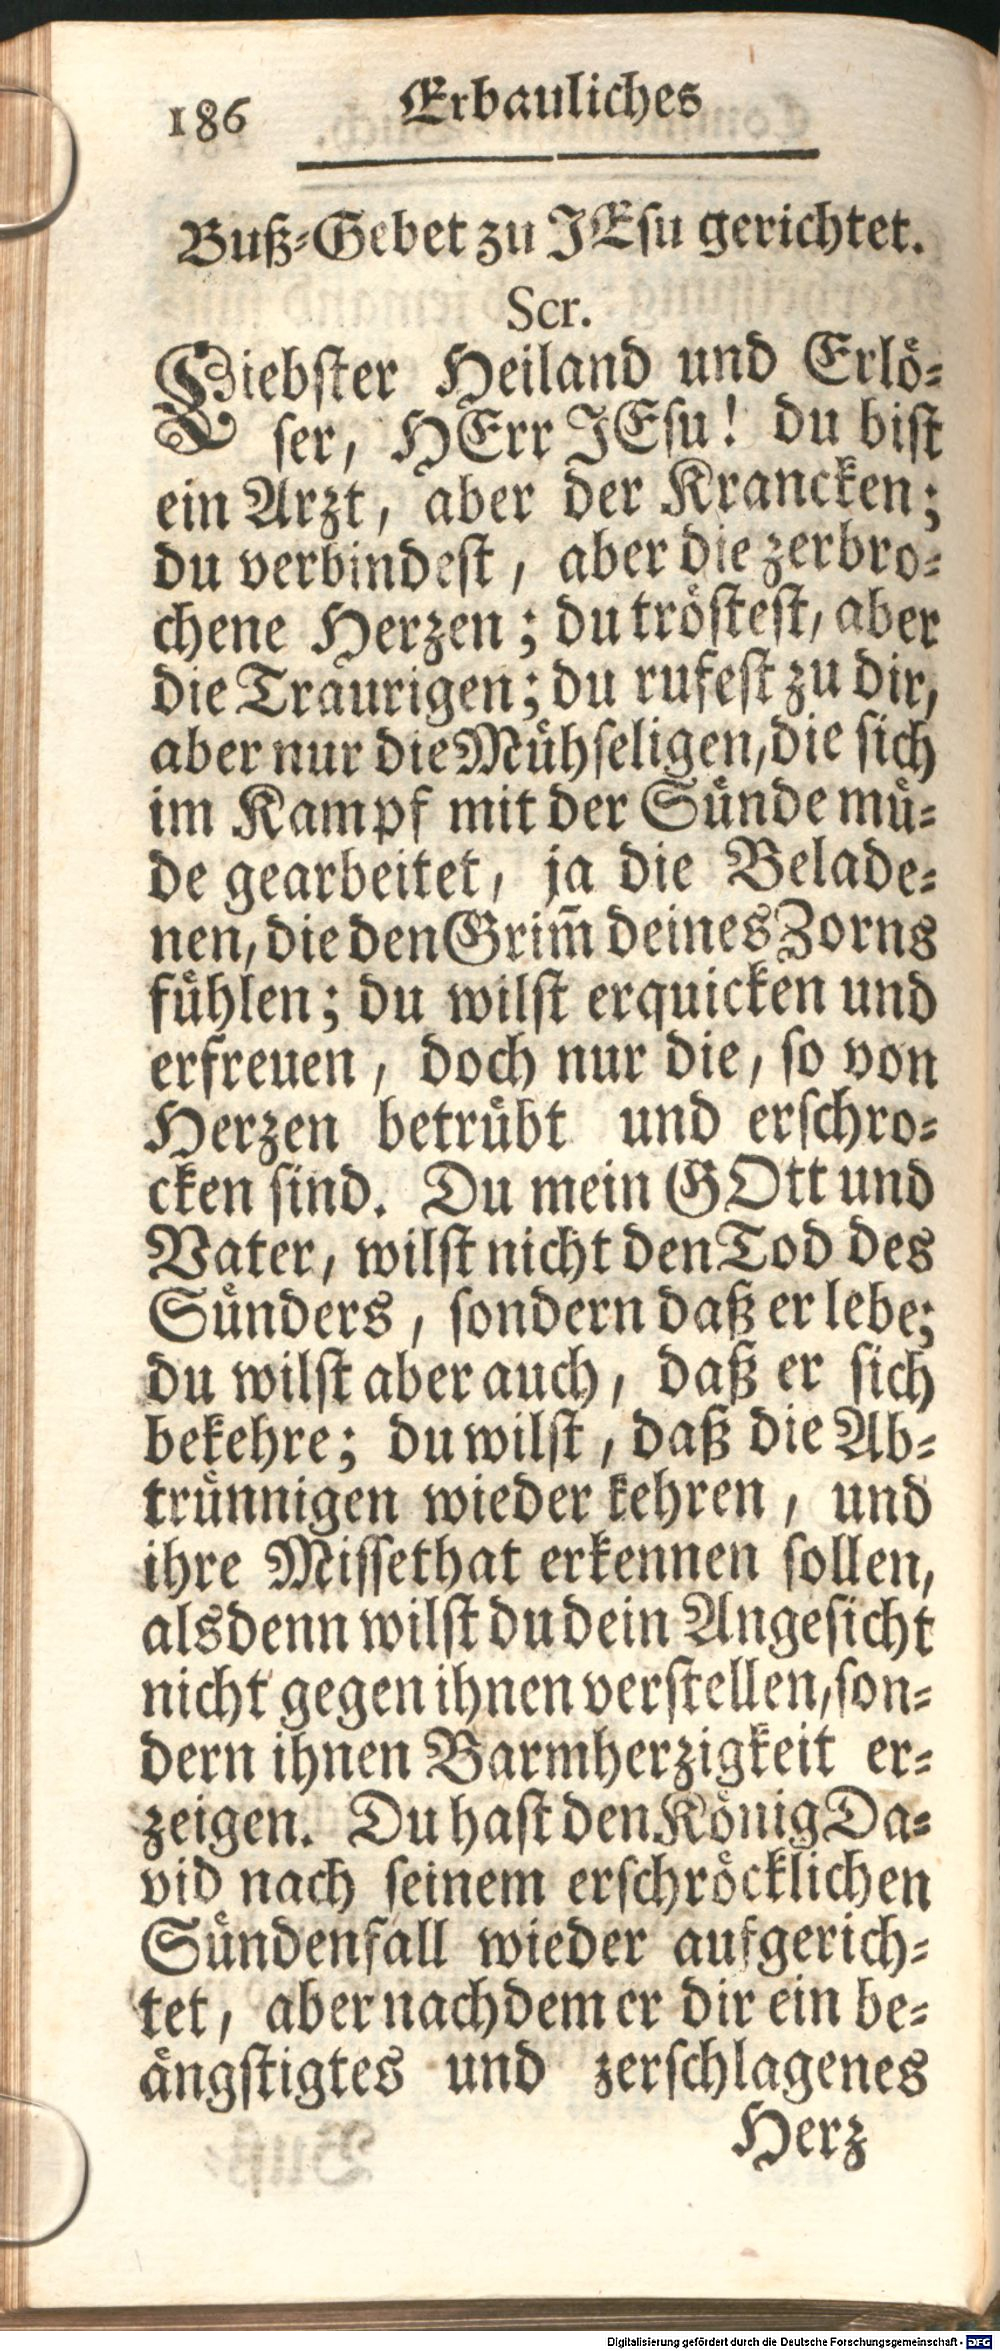 186 Erbauliches
Buß-Gebet zu JEsu gerichtet.
Scr.
Liebster Heiland und Erlö-
ser, HErr JEsu! du bist
ein Arzt, aber der Krancken;
du verbindest, aber die zerbro-
chene Herzen; du tröstest, aber
die Traurigen; du rufest zu dir,
aber nur die Mühseligen, die sich
im Kampf mit der Sünde mü-
de gearbeitet, ja die Belade-
nen, die den Grim̄ deines Zorns
fühlen; du wilst erquicken und
erfreuen, doch nur die, so von
Herzen betrübt und erschro-
cken sind. Du mein GOtt und
Vater, wilst nicht den Tod des
Sünders, sondern daß er lebe;
du wilst aber auch, daß er sich
bekehre; du wilst, daß die Ab-
trünnigen wieder kehren, und
ihre Missethat erkennen sollen,
alsdenn wilst du dein Angesicht
nicht gegen ihnen verstellen, son-
dern ihnen Barmherzigkeit er-
zeigen. Du hast den König Da-
vid nach seinem erschröcklichen
Sündenfall wieder aufgerich-
tet, aber nachdem er dir ein be-
ängstigtes und zerschlagenes
Herz
Digitalisierung gefördert durch die Deutsche Forschungsgemeinschaft - DFG